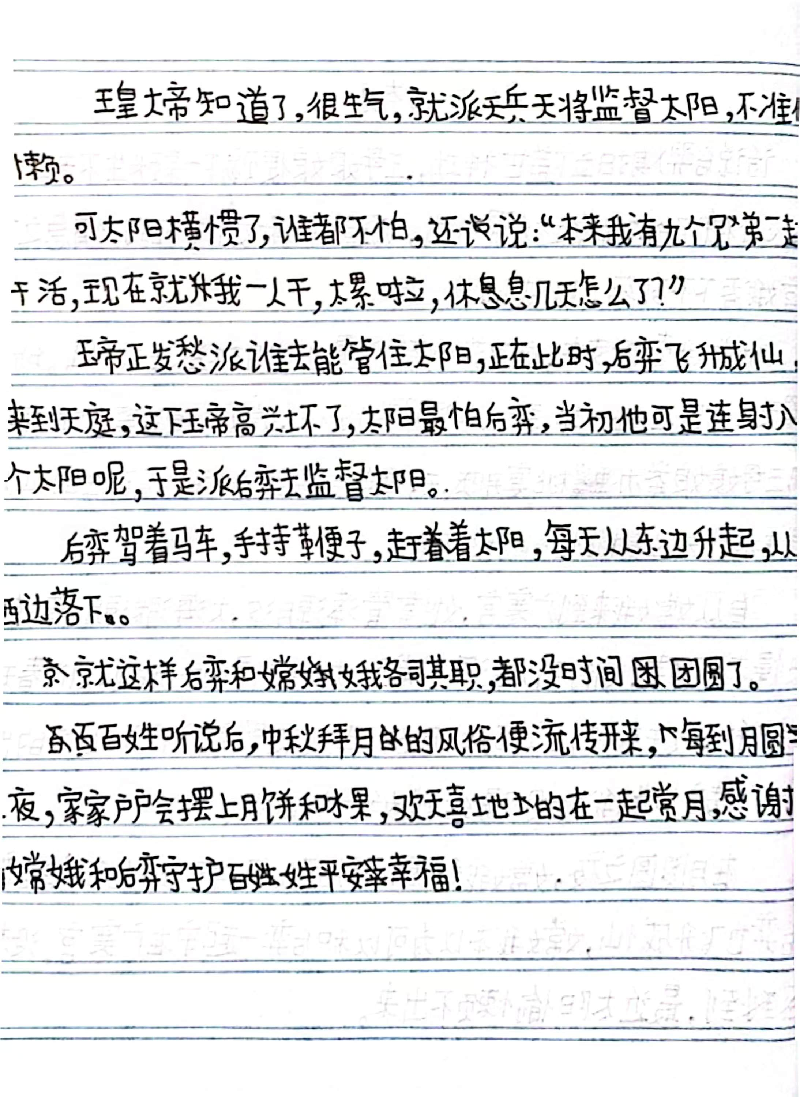 玉皇大帝知道了，很生气，就派天兵天将监督太阳，不准
懒。
可太阳横惯了，谁都不怕，还说说：“本来我有九个兄弟一起
干活，现在就我一人干，太累啦，休息息几天怎么了？”
玉帝正发愁派谁去能管住太阳，正在此时，后弈飞升成仙
来到天庭，这下玉帝高兴坏了，太阳最怕后弈，当初他可是连射八
个太阳呢，于是派后弈去监督太阳。
后弈驾着马车，手持革便子，赶着着太阳，每天从东边升起，从
西边落下。
就这样后弈和嫦娥娥各司其职，都没时间团圆了。
百百姓听说后，中秋拜月的的风俗便流传开来，每到月圆
夜，家家户户会摆上月饼和水果，欢天喜地地的在一起赏月，感谢
嫦娥和后弈守护百姓姓平安幸福！